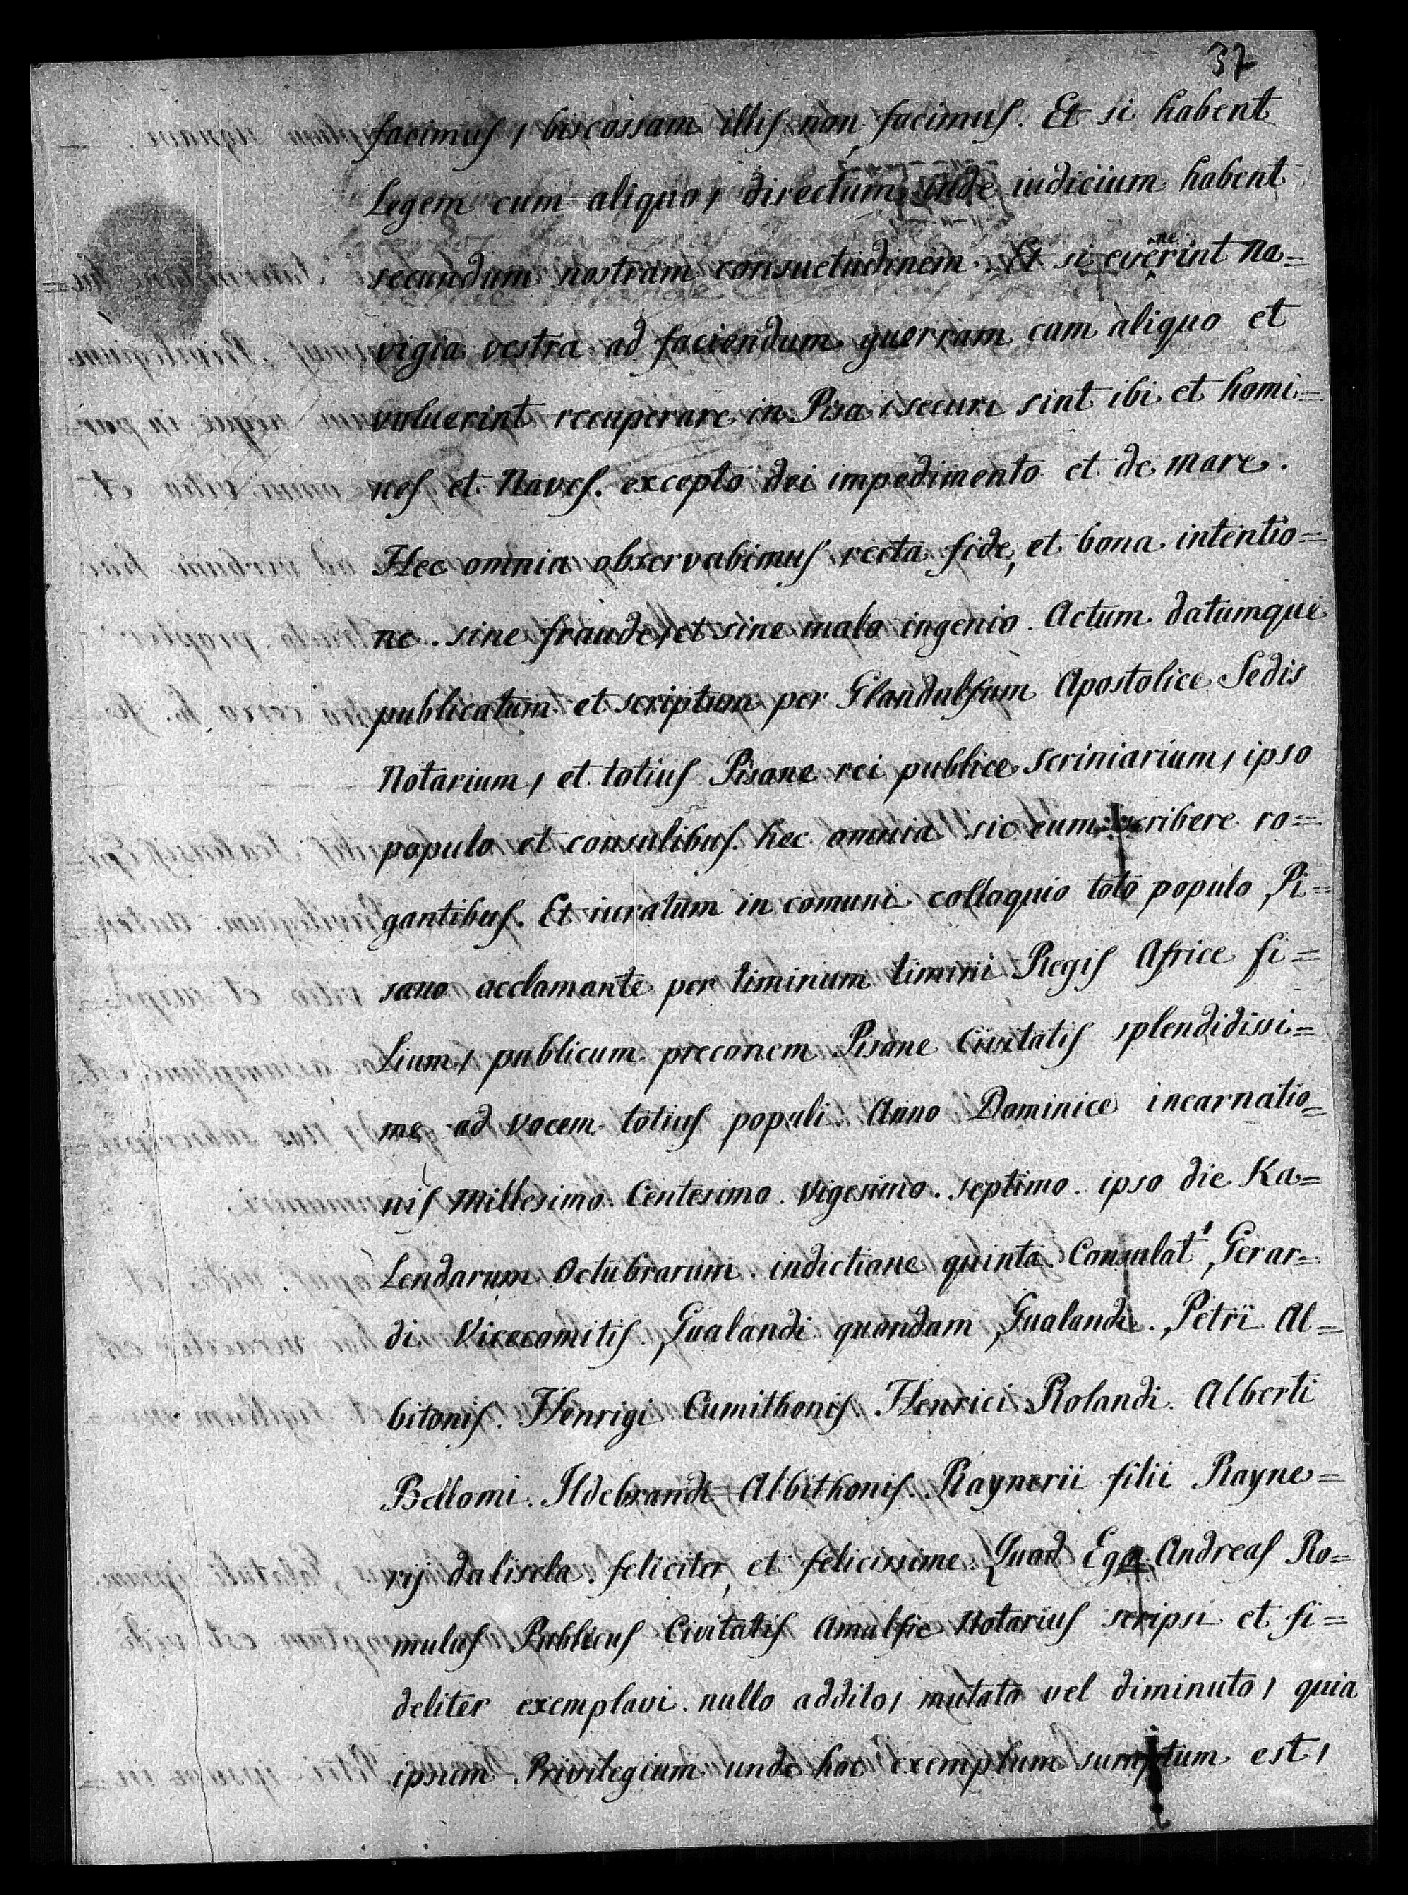 37
facimus, biscossam illis non facimus. Et si habent
Legem cum aliquo, directum inde iudicium habent
secundum nostram consuetudinem. Et si evenerint na=
vigia vestra ad faciendum guerram cum aliquo et
voluerint recuperare in Pisa, securi sint ibi et homi=
nes et Naves. excepto dei impedimento et de mare.
Hec omnia observabimus recta fide, et bona intentio=
ne. sine fraude, et sine malo ingenio. Actum datumque
publicatum et scriptum per Glandulfum Apostolice Sedis
Notarium, et totius Pisane rei publice scriniarium, ipso
populo et consulibus. hec omnia sic eum scribere ro=
gantibus. Et iuratum in comuni colloquio toto populo Pi=
sano acclamante per timinum timini Regis Africe fi=
Lium, publicum preconem Pisane Civitatis splendidissi=
me ad vocem totius populi. Anno Dominice incarnatio=
nis Millesimo. Centesimo. Vigesimo. septimo. ipso die Ka=
Lendarum Octubrarum. indictione quinta. Consulat' Gerar=
di Vicecomitis. Gualandi quondam Gualandi. Petrii Al=
bitonis. Henrigi Cumithonis. Henrici Rolandi. Alberti
Bellomi. Ildebrandi Albithonis. Raynerii filii Rayne=
rij dalisela. feliciter, et felicissime. Quod Ego Andreas Ro=
mulus Publicus Civitatis Amalfie Notarius scripsi et fi=
deliter exemplavi. nullo addito, mutato vel diminuto, quia
ipsum Privilegium unde hoc exemplum sumptum est,